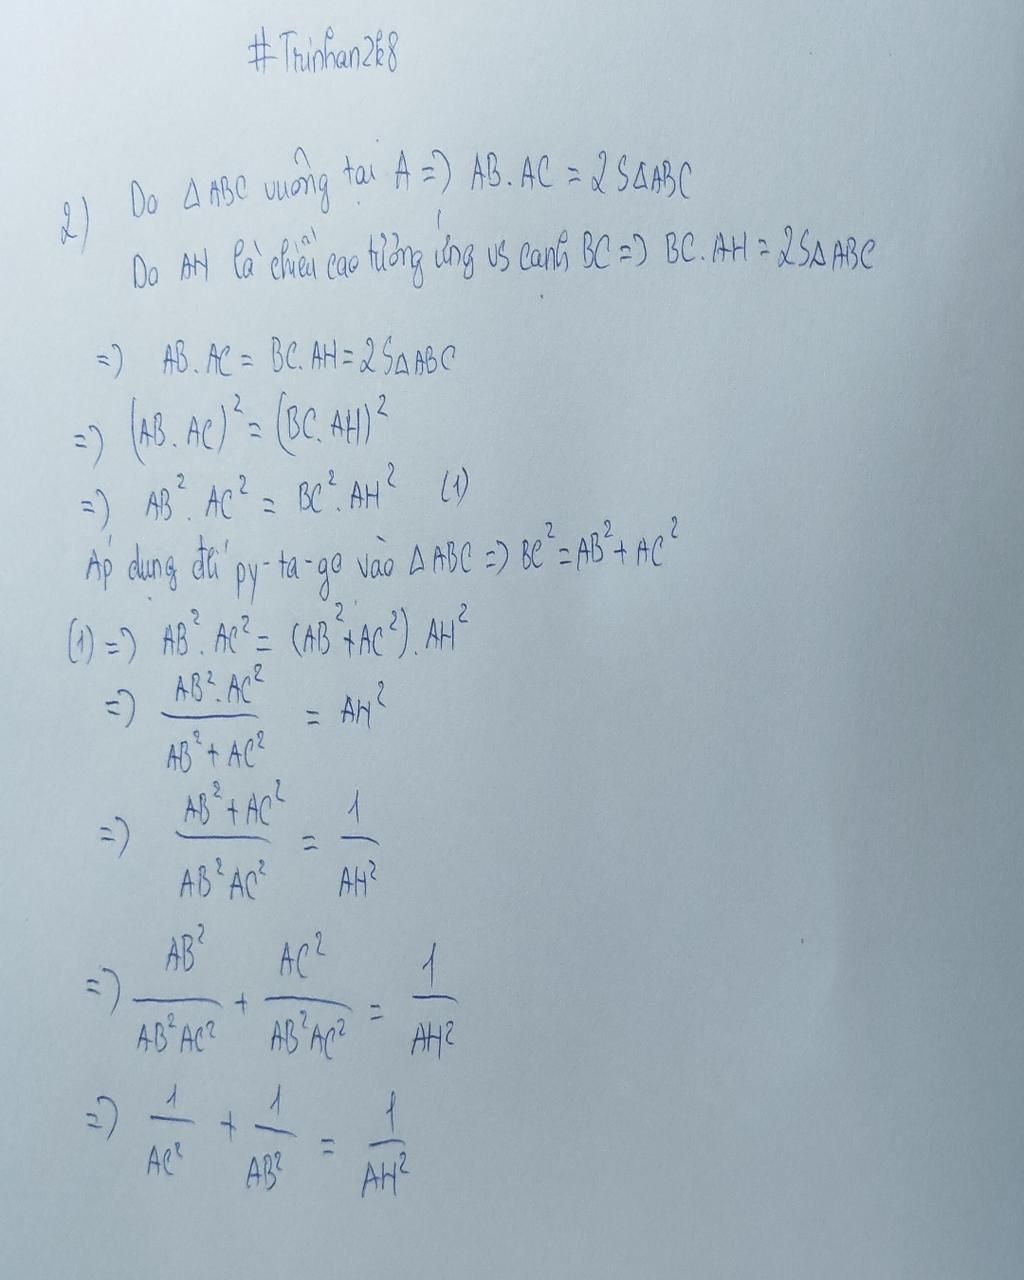 #Trinhan2k8
2) Do △ABC vuông tại A => AB.AC = 2S△ABC
Do AH là chiều cao tương ứng vs cạnh BC => BC.AH = 2S△ABC
=> AB.AC = BC.AH = 2S△ABC
=> (AB.AC)² = (BC.AH)²
=> AB².AC² = BC².AH² (1)
Áp dụng đlí py-ta-go vào △ABC => BC² = AB² + AC²
(1) => AB².AC² = (AB² + AC²).AH²
=> AB².AC² / AB² + AC² = AH²
=> AB² + AC² / AB²AC² = 1 / AH²
=> AB² / AB²AC² + AC² / AB²AC² = 1 / AH²
=> 1 / AC² + 1 / AB² = 1 / AH²